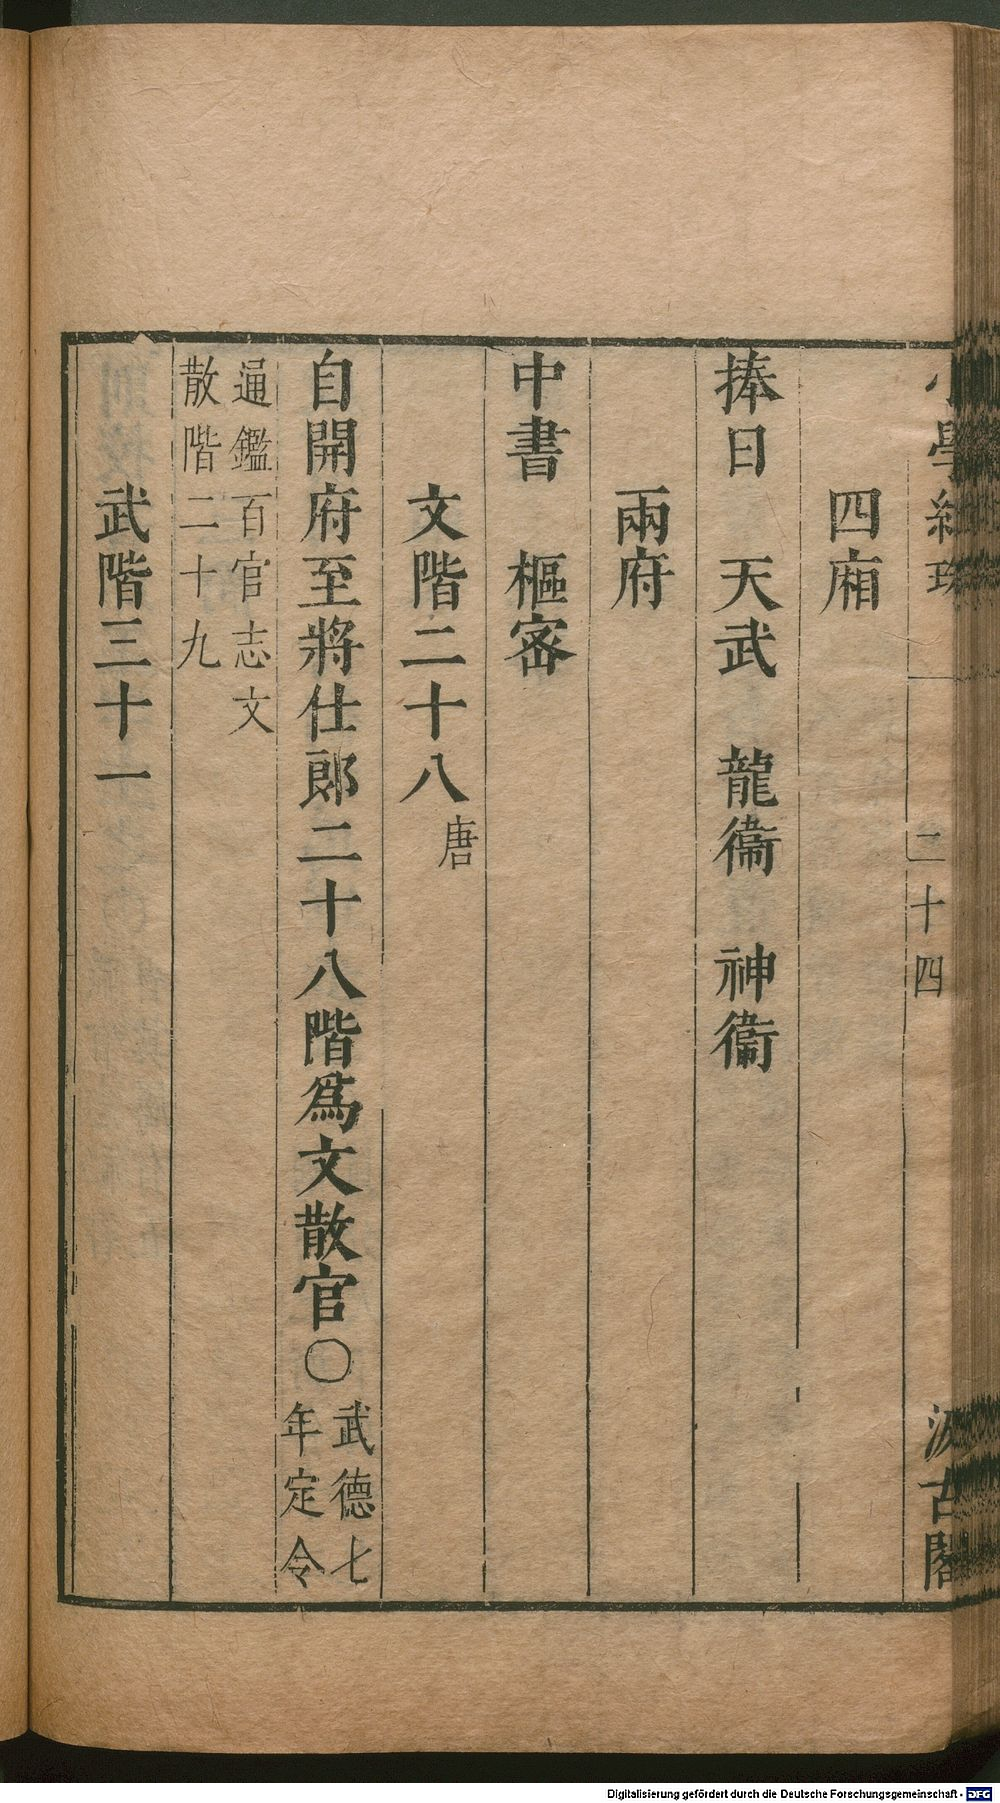 小學紺珠 二十四 汲古閣
四廂
捧日 天武 龍衞 神衞
兩府
中書 樞密
文階二十八 唐
自開府至將仕郎二十八階爲文散官〇武德七
年定令
通鑑百官志文
散階二十九
武階三十一
Digitalisierung gefördert durch die Deutsche Forschungsgemeinschaft - DFG